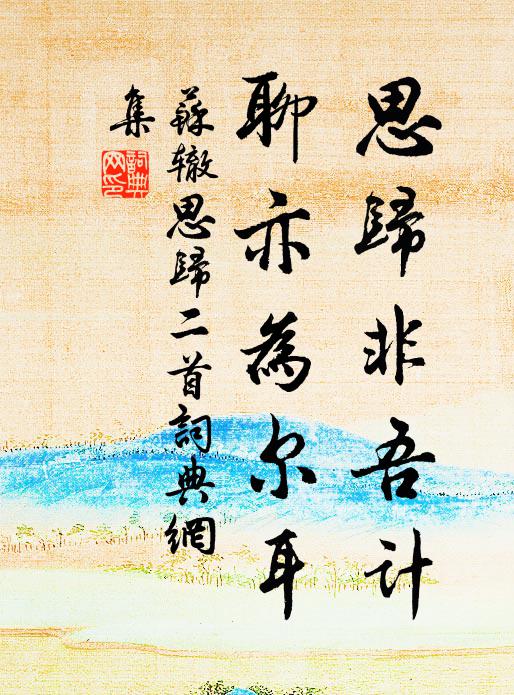 思歸非吾计
聊亦為尔耳
蘇辙思歸二首詞典網
集
詞典
网印